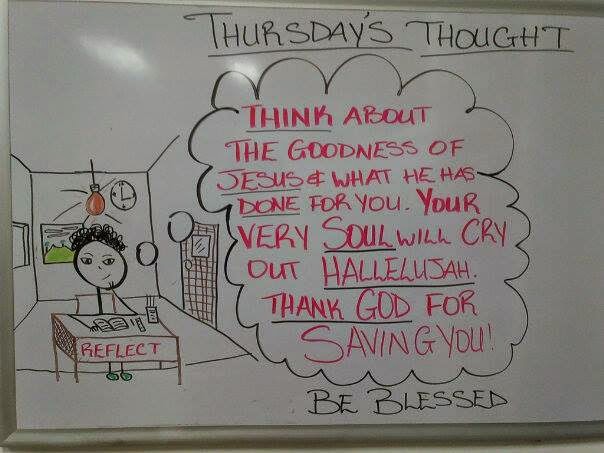 THURSDAY'S THOUGHT
THINK ABOUT
THE GOODNESS OF
JESUS & WHAT HE HAS
DONE FOR YOU. YOUR
VERY SOUL WILL CRY
OUT HALLELUJAH.
THANK GOD FOR
SAVING YOU!
REFLECT
BE BLESSED